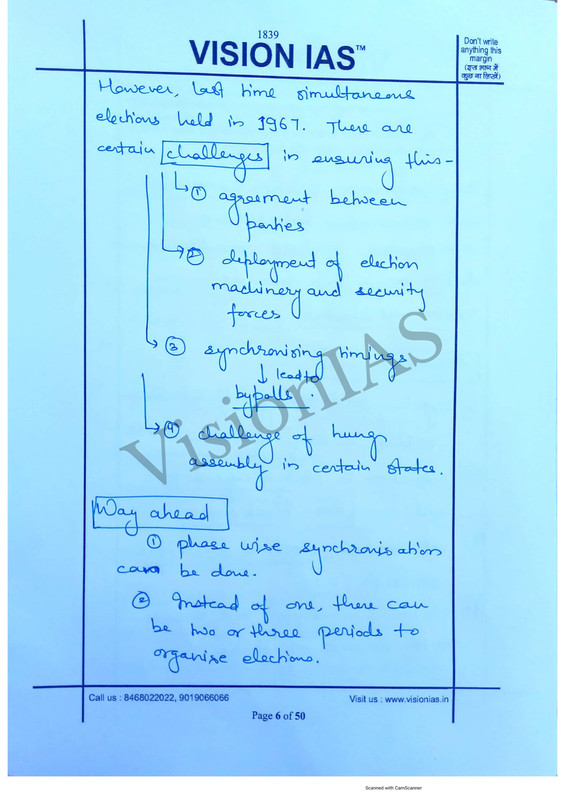 1839
VISION IAS™
Don't write
anything this
margin
(इस भाग में
कुछ ना लिखें)
However, last time simultaneous
elections held in 1967. There are
certain challenges in ensuring this-
① agreement between
parties
② deployment of election
machinery and security
forces
③ synchronising timings
↓ lead to
bypolls.
④ challenge of hung
assembly in certain states.
VisionIAS
Way ahead
① phase wise synchronisation
can be done.
② Instead of one, there can
be two or three periods to
organise elections.
Call us : 8468022022, 9019066066
Visit us : www.visionias.in
Page 6 of 50
Scanned with CamScanner